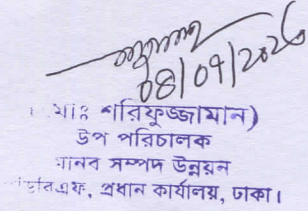 08/07/2020
মোঃ শরিফুজ্জামান)
উপ পরিচালক
মানব সম্পদ উন্নয়ন
প্রধান কার্যালয়, ঢাকা।